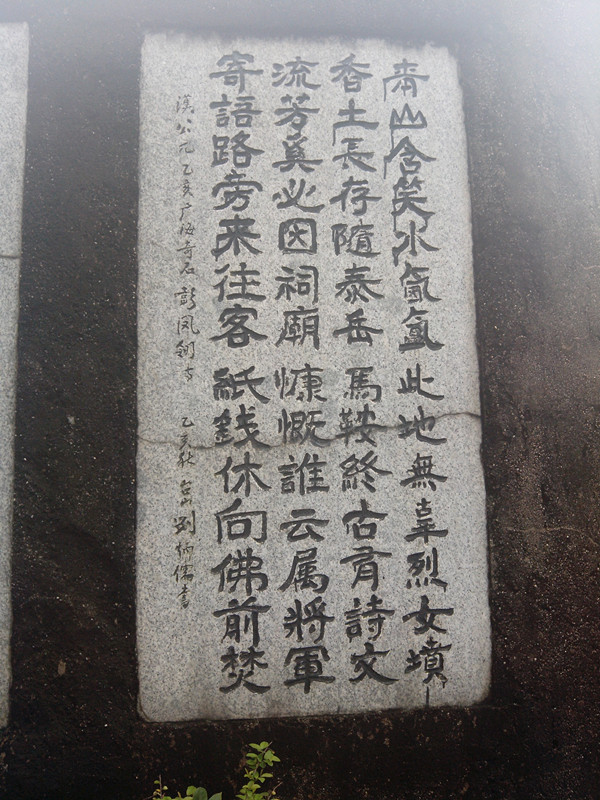 青山含笑水氤氳此地無辜烈女墳
香土長存隨泰岳馬鞍終古有詩文
流芳奚必因祠廟慷慨誰云属將軍
寄語路旁来往客紙錢休向佛前焚
公元乙亥广海奇石 乙亥秋 台山刘炳儒書